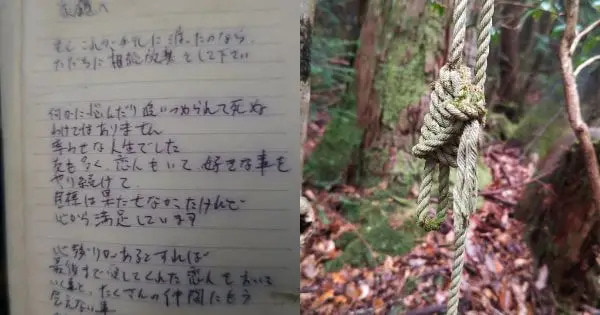 もし これが 手元に渡ったのなら、
ただちに 相続放棄 をして下さい
何かに悩んだり追いつめられて死ぬ
わけではありません
幸わせな人生でした
友も多く、恋人もいて、好きな事を
やり続けて、
目標は果たせなかったけれど
心から満足しています
心残りがあるとすれば
最後まで愛してくれた恋人をおいて
いく事と、たくさんの仲間にもう
会えない事